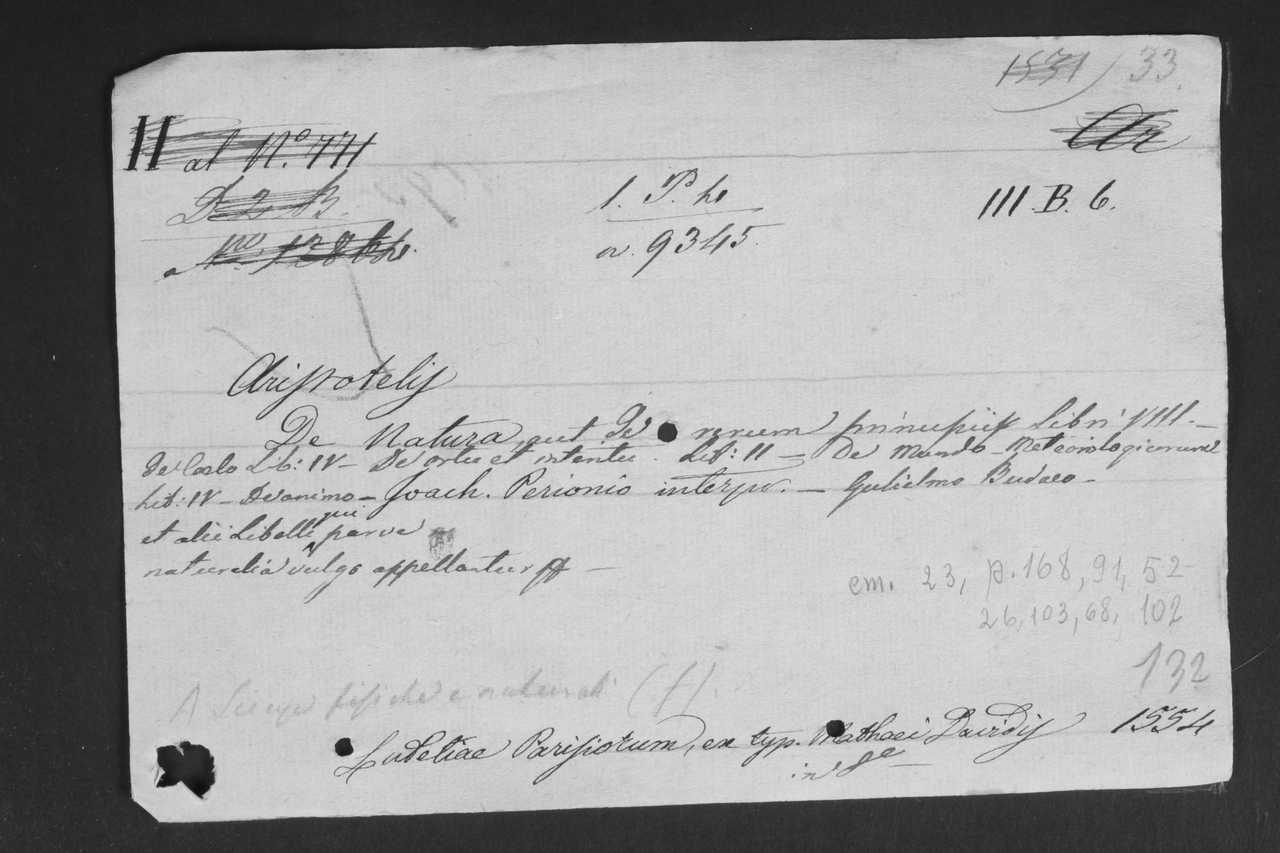 1571) 33.
II at No. 771
Ar
D 2 B.
1. P. ho
III. B. 6.
a. 9345.
Aristotelis
De Natura, aut de rerum principiis Libri VIII. —
de Coelo Lib: IV — De ortu et interitu Lib: II — De Mundo — Meteorologicorum
Lib: IV — De animo — Joach. Perionio interpr. — Gulielmo Budaeo —
et alii Libelli qui parva
naturalia vulgo appellantur —
cm. 23, p. 168, 91, 52
26, 103, 68, 102
132
A fisiche e naturali (f).
Lutetiae Parisiorum, ex typ. Mathaei Davidis 1554
in 8e